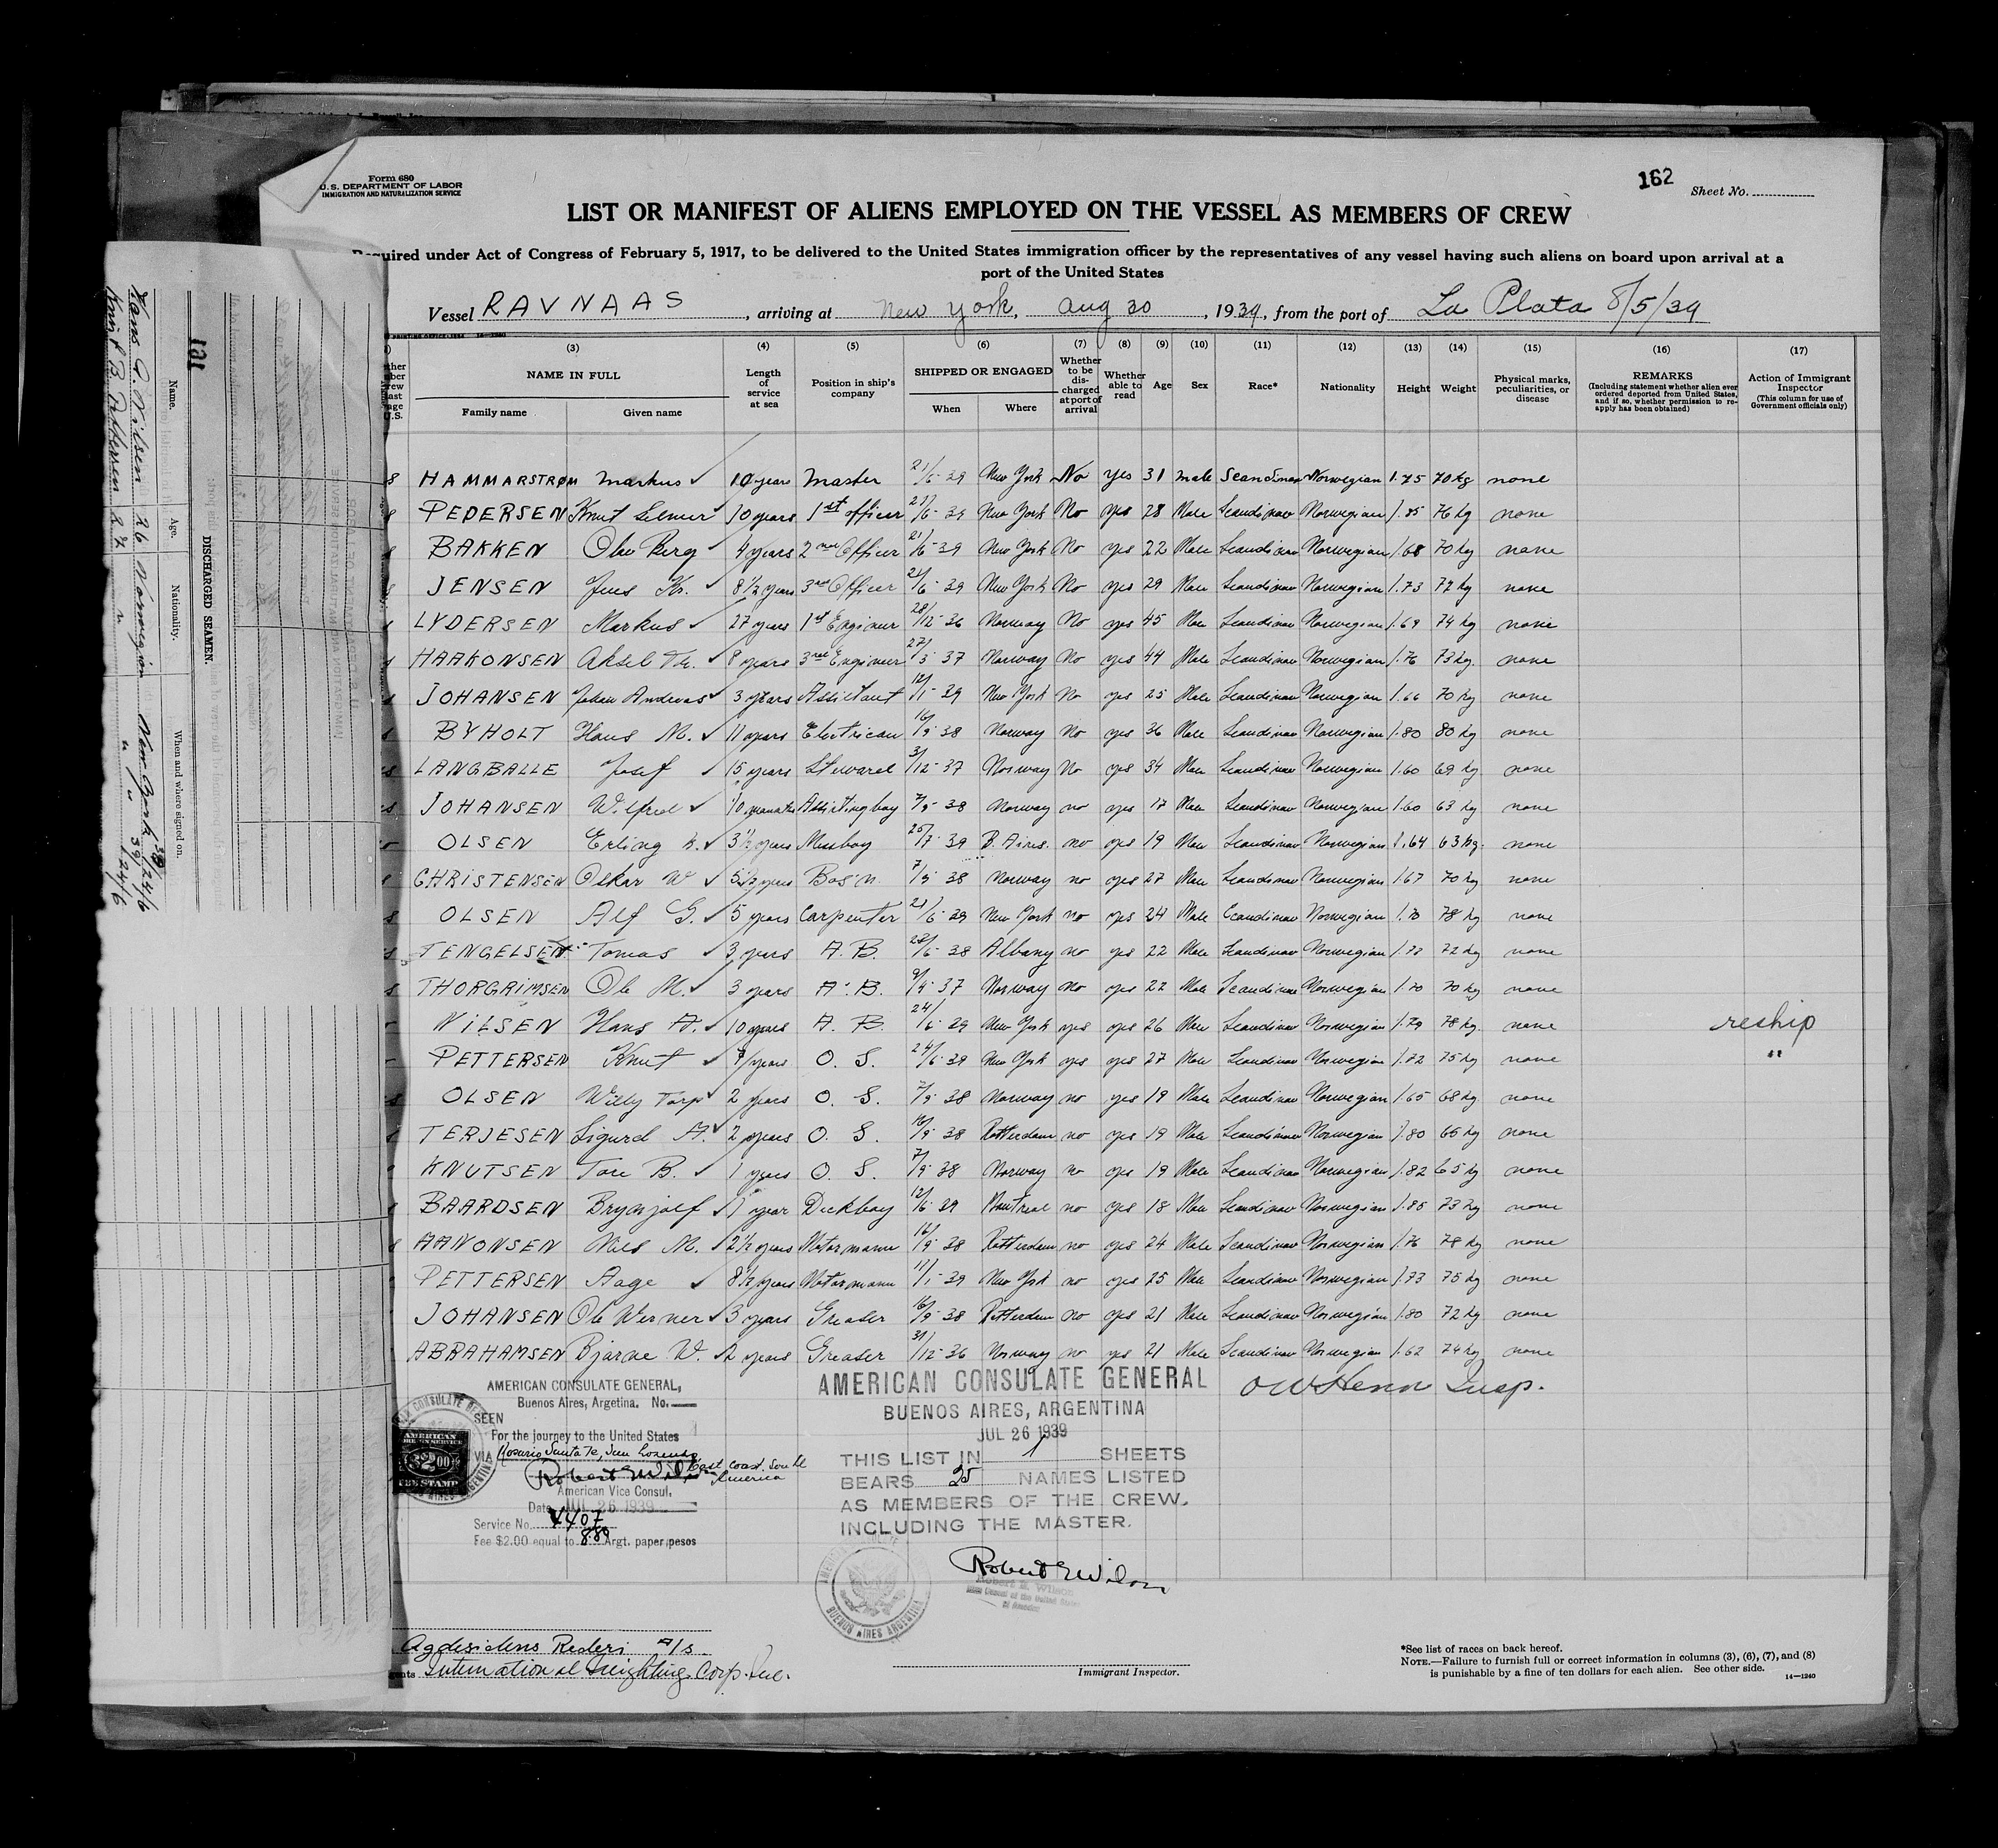 Form 680
U.S. DEPARTMENT OF LABOR
IMMIGRATION AND NATURALIZATION SERVICE
162
Sheet No.
LIST OR MANIFEST OF ALIENS EMPLOYED ON THE VESSEL AS MEMBERS OF CREW
Required under Act of Congress of February 5, 1917, to be delivered to the United States immigration officer by the representatives of any vessel having such aliens on board upon arrival at a
port of the United States
Vessel RAVNAAS, arriving at New York, Aug 30, 1939, from the port of La Plata 8/5/39
(3) (4) (5) (6) (7) (8) (9) (10) (11) (12) (13) (14) (15) (16) (17)
NAME IN FULL
Family name Given name
Length of service at sea
Position in ship's company
SHIPPED OR ENGAGED
When Where
Whether to be discharged at port of arrival
Whether able to read
Age
Sex
Race*
Nationality
Height
Weight
Physical marks, peculiarities, or disease
REMARKS
(Including statement whether alien ever ordered deported from United States, and if so, whether permission to reapply has been obtained)
Action of Immigrant Inspector
(This column for use of Government officials only)
HAMMARSTRØM Markus 10 years Master 21/6-39 New York No yes 31 male Scandinav Norwegian 1.75 70 kg none
PEDERSEN Knut 10 years 1st officer 21/6-39 New York No yes 28 Male Scandinav Norwegian 1.85 76 kg none
BAKKEN Olav Berg 4 years 2nd Officer 21/6-39 New York No yes 22 Male Scandinav Norwegian 1.68 70 kg none
JENSEN Jens K. 8 1/2 years 3rd Officer 21/6-39 New York No yes 29 Male Scandinav Norwegian 1.73 72 kg none
LYDERSEN Markus 27 years 1st Engineer 28/12-36 Norway No yes 45 Male Scandinav Norwegian 1.69 74 kg none
HAAKONSEN Aksel 8 years 3rd Engineer 27/5-37 Norway No yes 44 Male Scandinav Norwegian 1.76 73 kg none
JOHANSEN Johan Andreas 3 years Assistant 12/1-39 New York No yes 25 Male Scandinav Norwegian 1.66 70 kg none
BYHOLT Hans M. 11 years Electrican 16/9-38 Norway No yes 36 Male Scandinav Norwegian 1.80 80 kg none
LANGBALLE Josef 15 years Steward 3/12-37 Norway No yes 34 Male Scandinav Norwegian 1.60 69 kg none
JOHANSEN Wilfred 10 months Assistingboy 7/9-38 Norway no yes 17 Male Scandinav Norwegian 1.60 63 kg none
OLSEN Erling K. 3 1/2 years Messboy 25/7-39 B. Aires. no yes 19 Male Scandinav Norwegian 1.64 63 kg. none
CHRISTENSEN Oskar W 5 1/2 years Bos'n 7/9-38 Norway no yes 27 Male Scandinav Norwegian 1.67 70 kg none
OLSEN Alf G. 5 years Carpenter 21/6-39 New York no yes 24 Male Scandinav Norwegian 1.70 78 kg none
TENGELSEN Tomas 3 years A. B. 28/6-38 Albany no yes 22 Male Scandinav Norwegian 72 kg none
THORGRIMSEN Ole M. 3 years A. B. 9/9-37 Norway no yes 22 Male Scandinav Norwegian 1.70 70 kg none
NILSEN Hans A. 10 years A. B. 24/6-39 New York yes yes 26 Male Scandinav Norwegian 1.79 78 kg. none reship
PETTERSEN Knut years O. S. 24/6-39 New York yes yes 27 Male Scandinav Norwegian 1.72 75 kg none "
OLSEN Willy Torp 2 years O. S. 7/9-38 Norway no yes 19 Male Scandinav Norwegian 1.65 68 kg none
TERJESEN Sigurd A. 2 years O. S. 16/9-38 Rotterdam no yes 19 Male Scandinav Norwegian 1.80 66 kg none
KNUTSEN Tore B. 1 years O. S. 7/9-38 Norway no yes 19 Male Scandinav Norwegian 1.82 65 kg none
BAARDSEN Brynjolf 1 year Deckboy 12/6-39 Montreal no yes 18 Male Scandinav Norwegian 1.85 73 kg none
AANONSEN Nils M. 2 1/2 years Motormann 16/9-38 Rotterdam no yes 24 Male Scandinav Norwegian 1.76 78 kg none
PETTERSEN Aage 8 1/2 years Motormann 11/1-39 New York no yes 25 Male Scandinav Norwegian 1.73 75 kg none
JOHANSEN Ole Werner 3 years Greaser 16/9-38 Rotterdam no yes 21 Male Scandinav Norwegian 1.80 72 kg none
ABRAHAMSEN Bjarne W. 2 years Greaser 31/12-36 Norway no yes 21 Male Scandinav Norwegian 1.62 74 kg none
AMERICAN CONSULATE GENERAL,
Buenos Aires, Argetina. No.
SEEN
For the journey to the United States
VIA Rosario, Santa Fe, San Lorenzo
East Coast South America
Robert E Wilson
American Vice Consul,
Date JUL 26 1939
Service No. 4407
Fee $2.00 equal to 8.89 Argt. paper pesos
AMERICAN CONSULATE GENERAL
BUENOS AIRES, ARGENTINA
JUL 26 1939
THIS LIST IN 1 SHEETS
BEARS 25 NAMES LISTED
AS MEMBERS OF THE CREW.
INCLUDING THE MASTER.
Robert E Wilson
BUENOS AIRES ARGENTINA
Insp.
Agdesidens Rederi A/S
International Freighting Corp. Inc.
Immigrant Inspector.
*See list of races on back hereof.
NOTE.—Failure to furnish full or correct information in columns (3), (6), (7), and (8)
is punishable by a fine of ten dollars for each alien. See other side.
14—1240
121
DISCHARGED SEAMEN.
Name. Age. Nationality. When and where signed on.
Hans A. Nilsen 26 Norwegian New York 39 24/6
Knut B. Pettersen 27 " " " 39 24/6